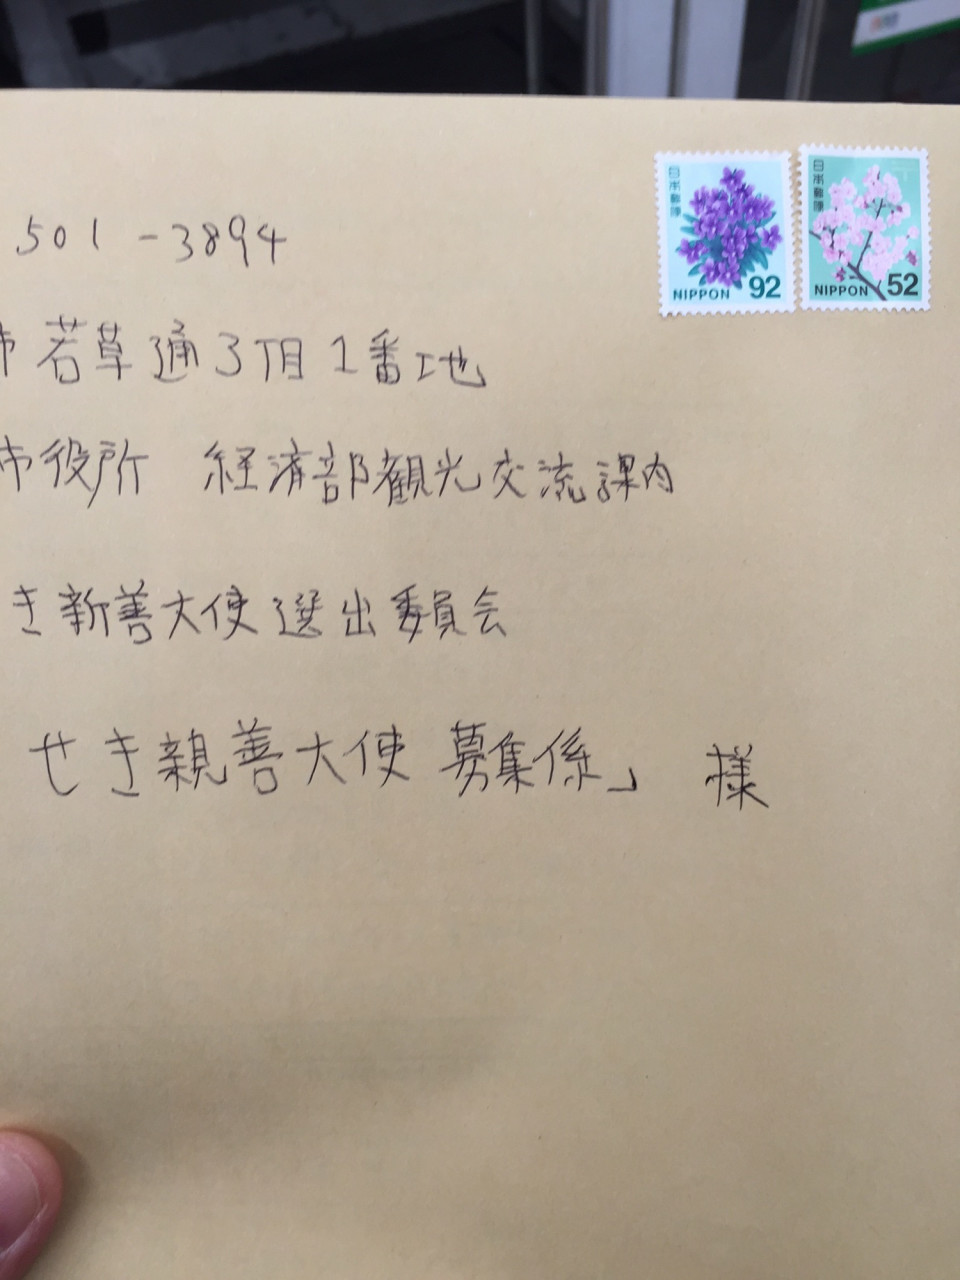 日本郵便
NIPPON 92
日本郵便
NIPPON 52
501-3894
市若草通3丁目1番地
市役所 経済部観光交流課内
き新善大使選出委員会
せき親善大使 募集係」 様